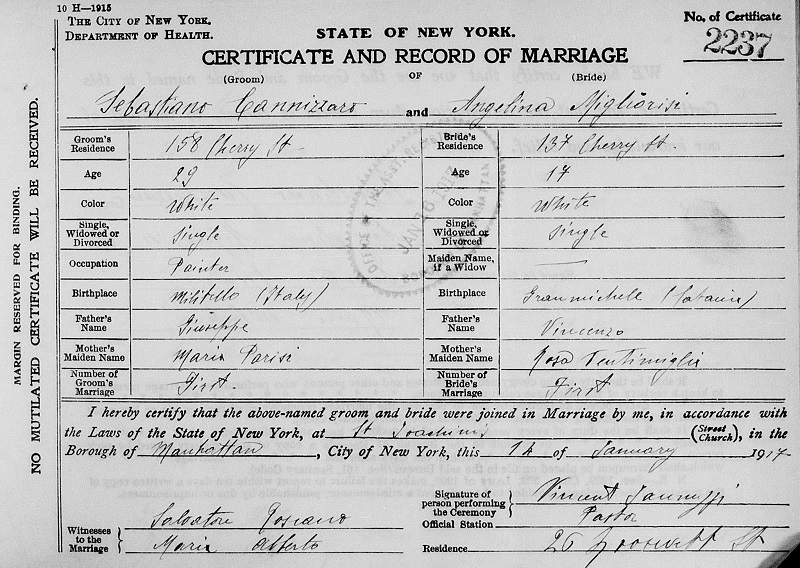 10 H—1915
THE CITY OF NEW YORK.
DEPARTMENT OF HEALTH.
STATE OF NEW YORK.
No. of Certificate
2237
CERTIFICATE AND RECORD OF MARRIAGE
(Groom) OF (Bride)
Sebastiano Cannizzaro and Angelina Migliorisi
Groom's Residence 158 Cherry St Bride's Residence 137 Cherry St.
Age 29 Age 17
Color White Color White
Single, Widowed or Divorced Single Single, Widowed or Divorced Single
Occupation Painter Maiden Name, if a Widow —
Birthplace Militello (Italy) Birthplace Granmichele
Father's Name Giuseppe Father's Name Vincenzo
Mother's Maiden Name Maria Parisi Mother's Maiden Name Rosa Ventimiglia
Number of Groom's Marriage First. Number of Bride's Marriage First
I hereby certify that the above-named groom and bride were joined in Marriage by me, in accordance with
the Laws of the State of New York, at St Joachim's (Street Church), in the
Borough of Manhattan, City of New York, this 14 of January 1917
Signature of person performing the Ceremony Vincent
Official Station Pastor
Witnesses to the Marriage Salvatore
Maria Alberto
Residence 26 Roosevelt St
MARGIN RESERVED FOR BINDING.
NO MUTILATED CERTIFICATE WILL BE RECEIVED.
JAN 16 1917